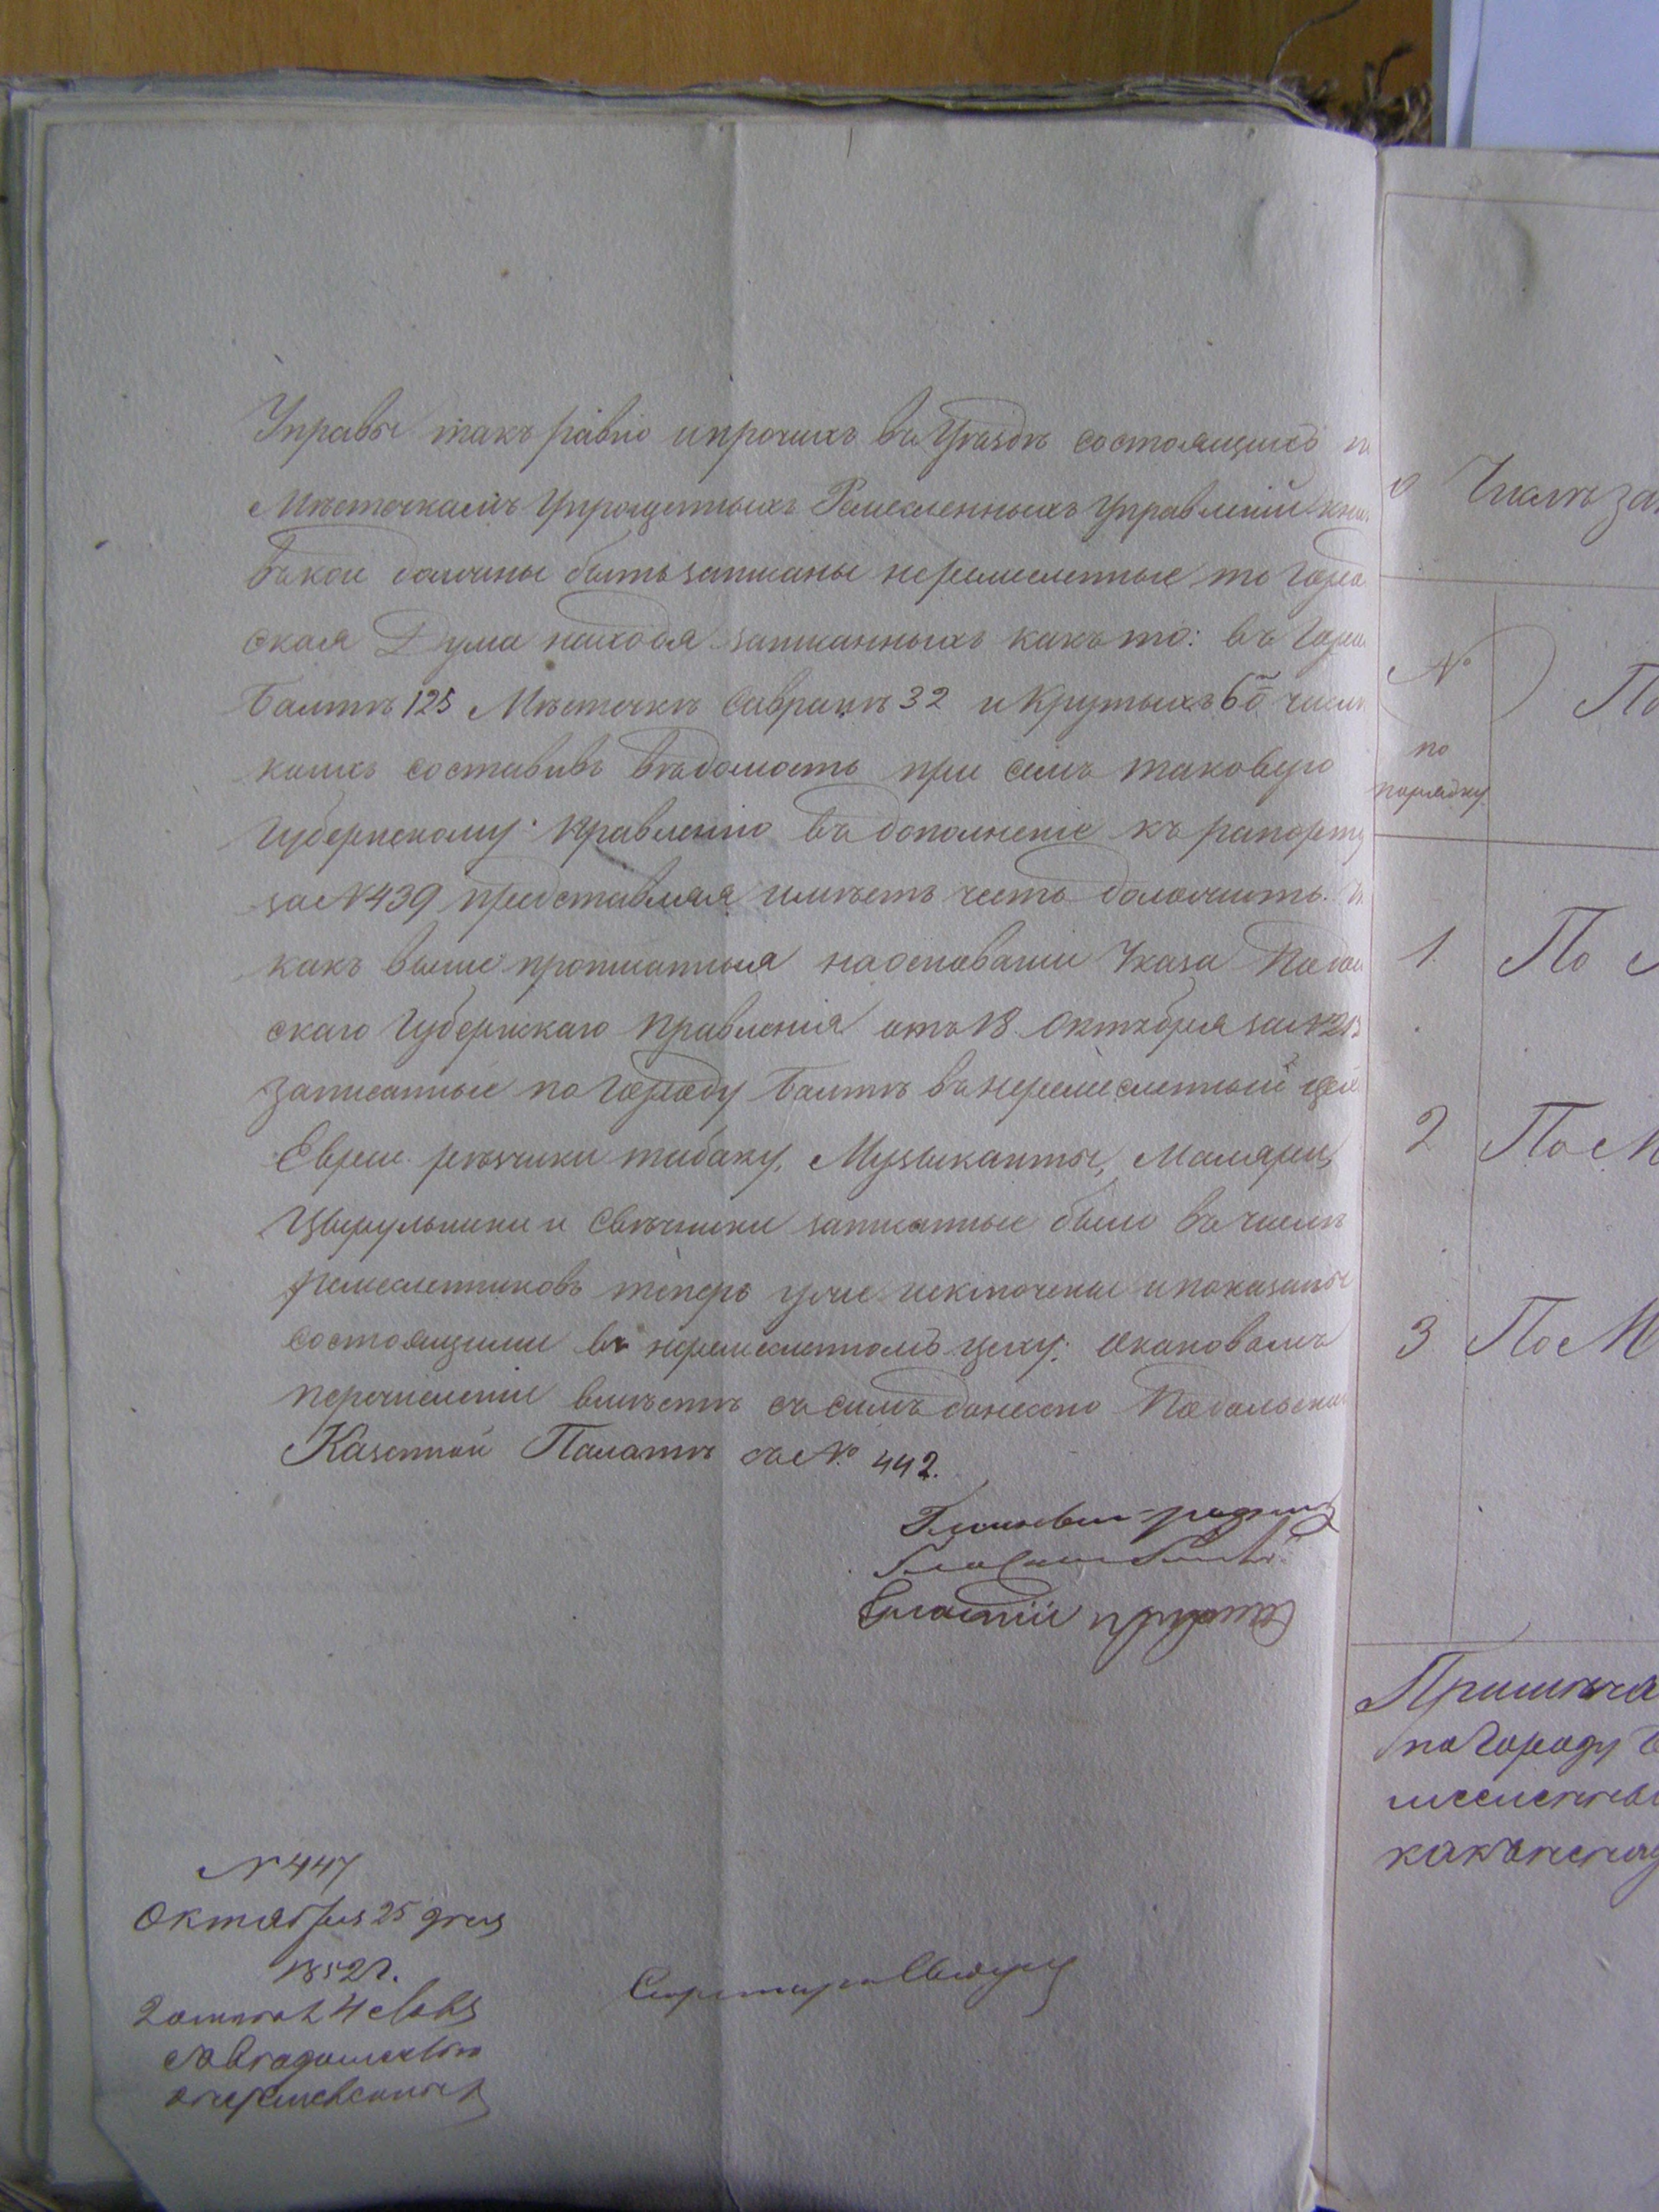 Управы такъ равно и прочихъ въ Уѣздѣ состоящихъ
Мѣстечкамъ Упрощенныхъ Ремесленныхъ Управленій
въ кои должны быть записаны неремесленные то Город
ская Дума находя записанныхъ какъ то: въ Горо
Балтѣ 125 Мѣстечкѣ Савранѣ 32 и Крутыхъ 60 числ
коихъ составивъ вѣдомость при семъ таковую
Губернскому Правленію въ дополненіе къ рапорту
за № 439 представляя имѣетъ честь доложить.
какъ выше прописанныя на основаніи Указа Подол
скаго Губернскаго Правленія отъ 18 Октября за №
записанные по Городу Балтѣ въ неремесленный цех
Евреи рѣзчики табаку, Музыканты, Маляры,
Цырульники и Свѣчники записанные были въ числѣ
ремесленниковъ теперь уже исключены и показаны
состоящими въ неремесленномъ цеху; о каковомъ
перечисленіи вмѣстѣ съ симъ донесено Подольской
Казенной Палатѣ за №. 442.
Секретарь
№ 447
Октября 25 дня
1852 г.
о неремесленных
Числѣ за
№
по
порядку
По
1. По
2 По М
3 По М
Примѣча
по городу Б
какъ